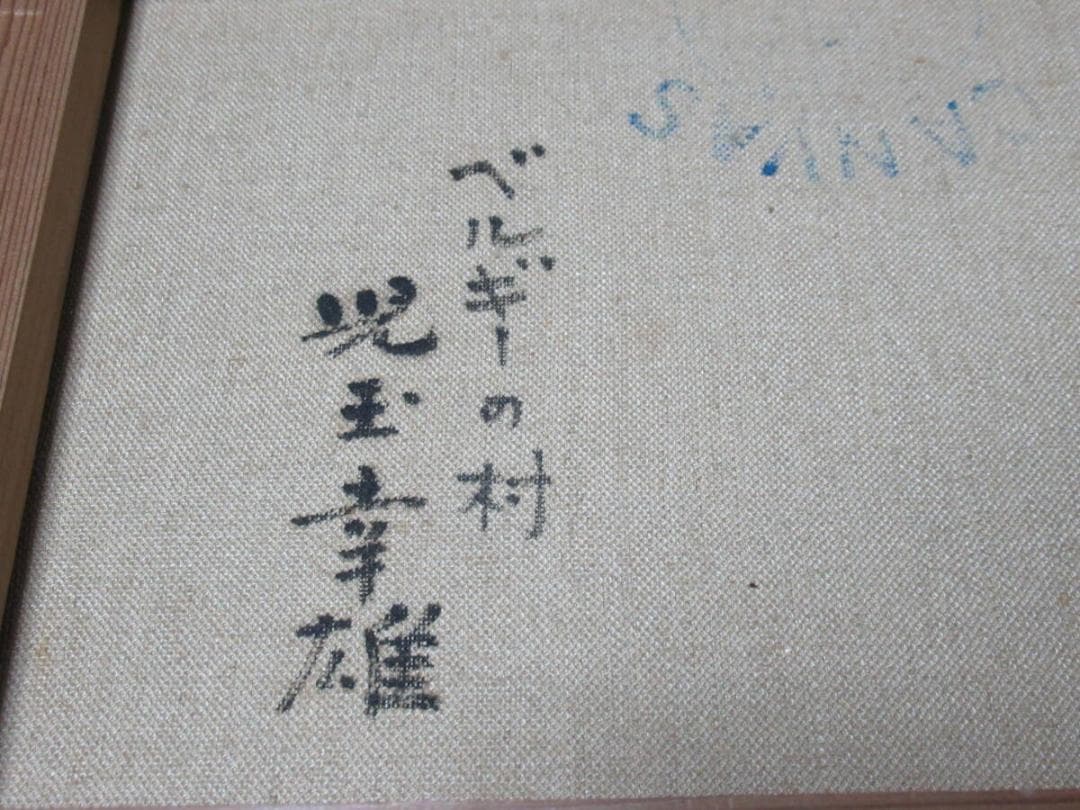 ベルギーの村
児玉幸雄